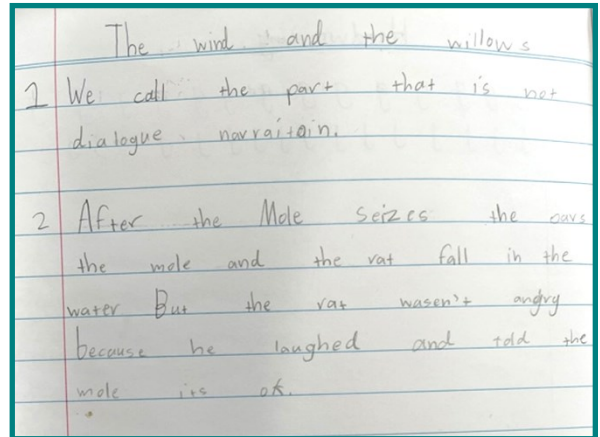 The wind and the willows
1 We call the part that is not
dialogue narraitoin.
2 After the Mole Seizes the oars
the mole and the rat fall in the
water But the rat wasen't angry
because he laughed and told the
mole its ok.